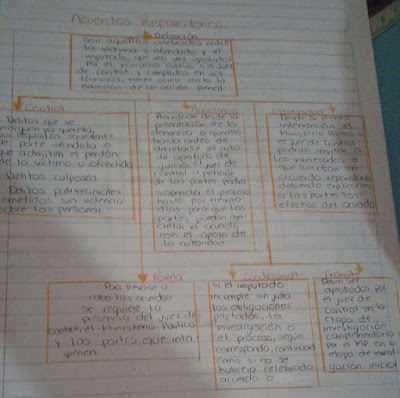 Acuerdos Reparatorios.
Definición
Son aquellos celebrados entre
la víctima u ofendido y el
imputado, que una vez aprobados
Por el ministerio Público o el juez
de control y cumplidos en sus
terminos, tienen como efecto la
extinción de la acción penal
Control
Delitos que se
persiguen por querella,
requisito equivalente
de parte ofendida o
que admitan el perdón
de la víctima u ofendido
Delitos culposos
Delitos patrimoniales
cometidos sin violencia
sobre las personas
desde la
presentación de la
denuncia o querella
hasta antes de
decretarse el auto
de apertura de
juicio. El juez de
control a petición
de las partes podrá
suspender el proceso
hasta por treinta
días para que las
partes puedan con-
cretar el acuerdo
con el apoyo de
la autoridad
Desde su primera
intervención el
Ministerio Público o
el juez de control
podrán invitar a
los interesados a
que suscriban un
acuerdo reparatorio
debiendo explicarles
a las partes los
efectos del acuerdo
Forma
Para llevarse a
cabo los acuerdos
se requiere la
presencia del juez de
control, el Ministerio Público
y las partes que inter-
vienen
Condicional
Si el imputado
incumple sin justa
las obligaciones
pactadas, la
investigación o
el proceso, según
corresponda, continuará
como si no se
hubiera celebrado
acuerdo
Trámite
Deben ser
aprobados por
el juez de
control en la
etapa de
investigación
complementaria
por el MP en la
etapa de investi-
gación inicial